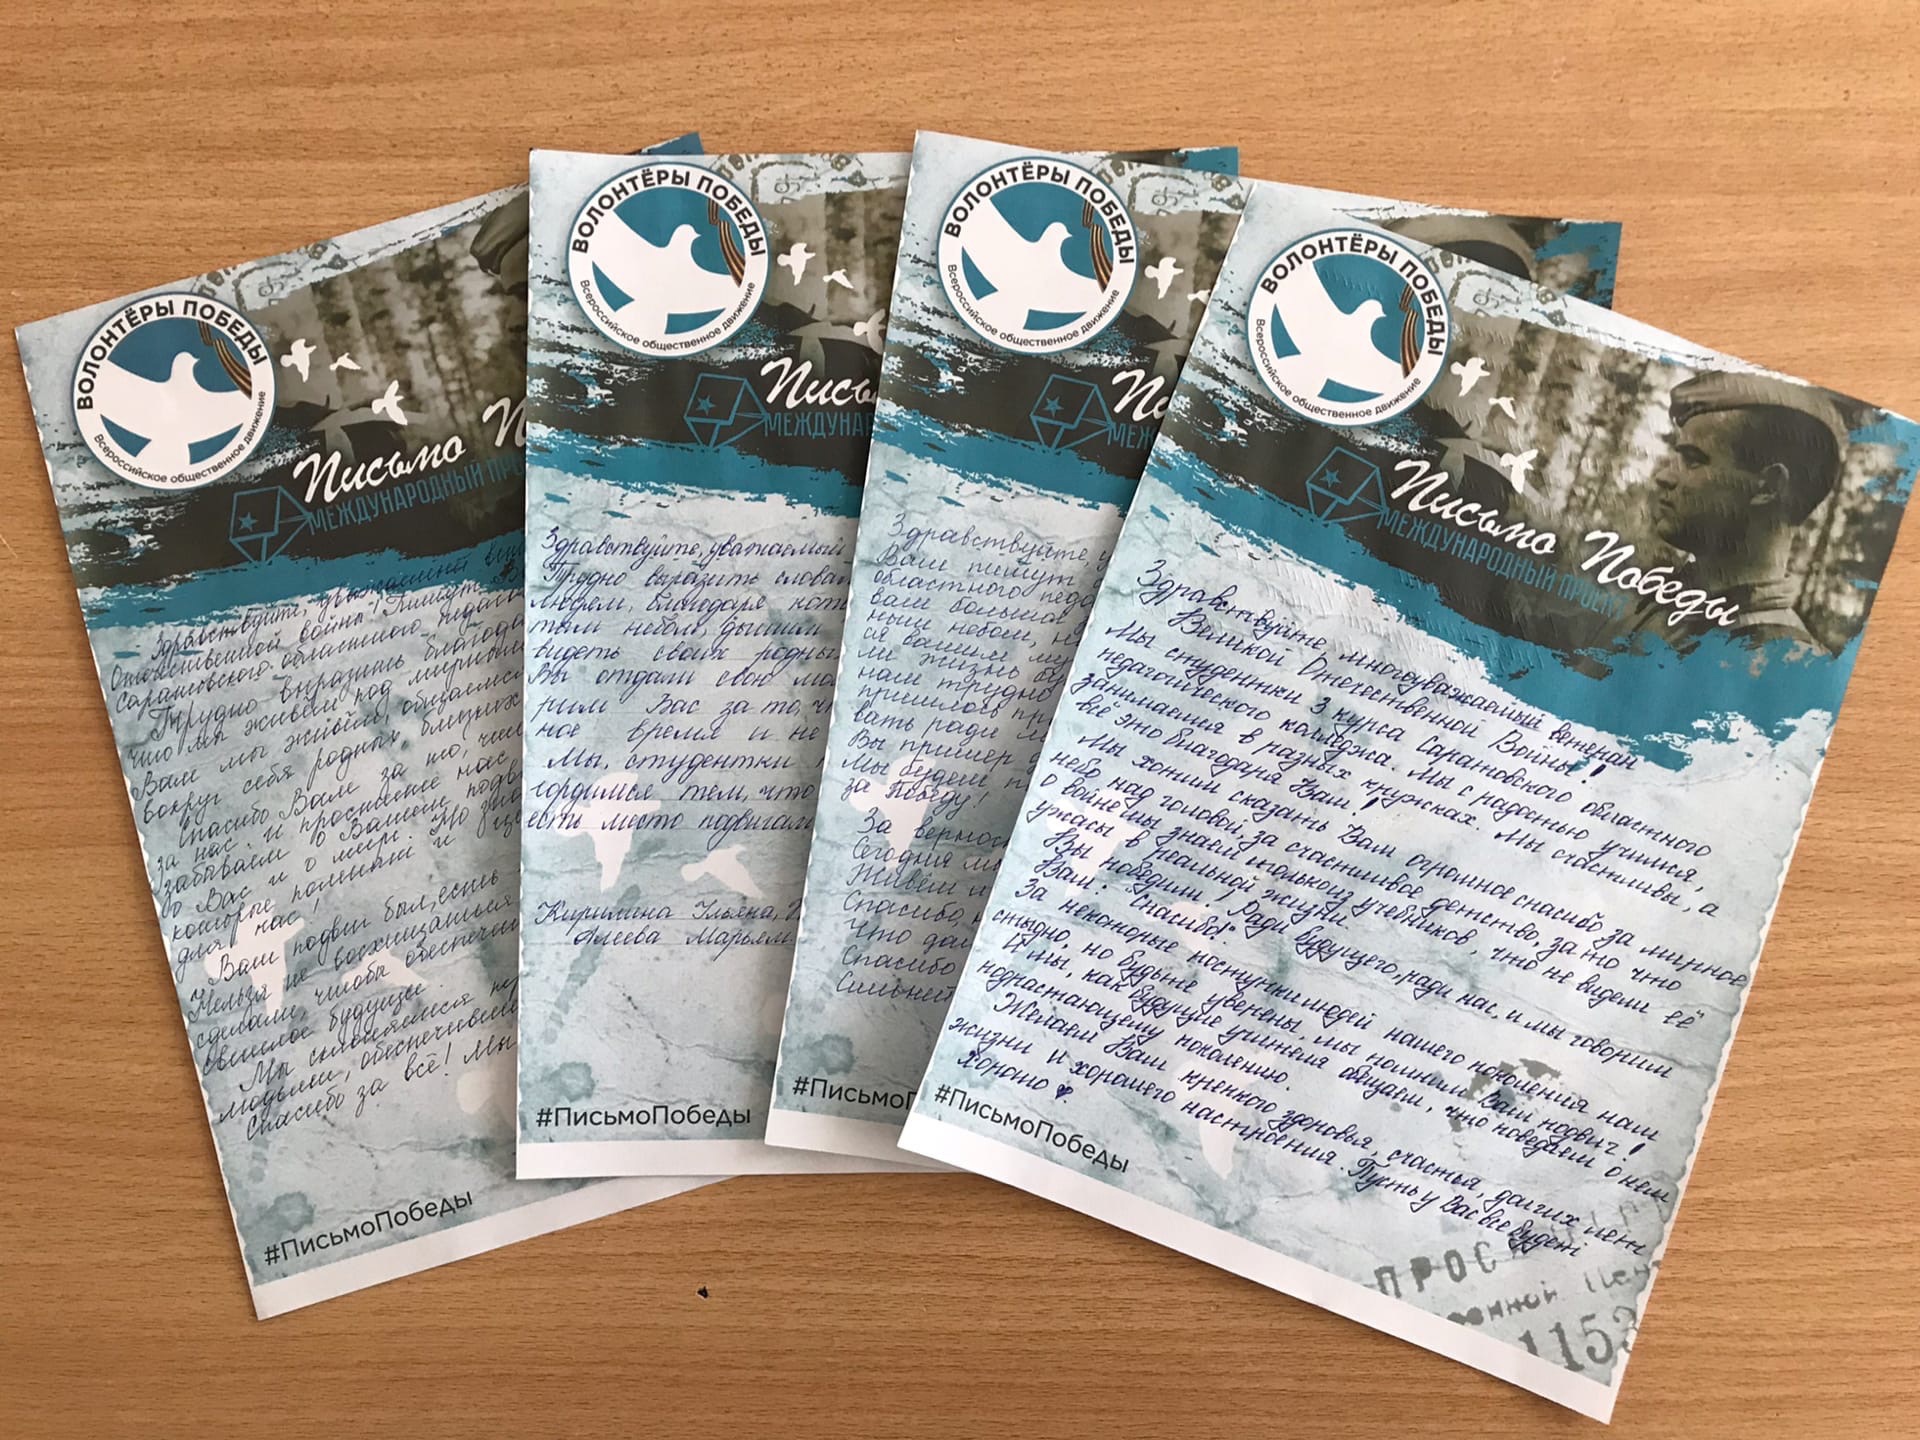 ВОЛОНТЁРЫ ПОБЕДЫ
Всероссийское общественное движение
Письмо П
МЕЖДУНАРОДНЫЙ ПРО
Здравствуйте, уважаемый
Отечественной войны! Пишут
Саратовского областного педаго
Трудно выразить благода
что мы живём под мирным
Вам мы живём, общаемся
вокруг себя родных, близких
Спасибо Вам за то, что
за нас и простите нас
забываем о Вашем подви
о Вас и о мире. Но
которые помнят и
для нас!
Ваш подвиг был, есть
Нельзя не восхищаться
сделали, чтобы обеспечи
светлое будущее.
Мы стыдимся
людьми, обеспечивши
Спасибо за всё! Мы
#ПисьмоПобеды
ВОЛОНТЁРЫ ПОБЕДЫ
Всероссийское общественное движение
Письм
МЕЖДУНАР
Здравствуйте, уважаемый
Трудно выразить словам
людям, благодаря кот
тым небом, дышим
видеть своих родны
Вы отдали свою мо
рим Вас за то, ч
ное время и не
Мы, студентки
гордимся тем, что
есть место подвигам
Кирилина Ульяна,
Алеева Марьям
#ПисьмоПобеды
ВОЛОНТЁРЫ ПОБЕДЫ
Всероссийское общественное движение
Пи
МЕЖ
Здравствуйте, у
Вам пишут
областного педа
вам большое
ным небом, не
ся вашим му
ли жизнь бу
нам трудно
пришлось пр
вать ради
Вы пример
Мы будем п
за Победу!
За вернос
Сегодня мы
Живём и
Спасибо,
Что дай
Спасибо
Сильней
#ПисьмоП
ВОЛОНТЁРЫ ПОБЕДЫ
Всероссийское общественное движение
Письмо Победы
МЕЖДУНАРОДНЫЙ ПРОЕКТ
Здравствуйте, многоуважаемый ветеран
Великой Отечественной Войны!
Мы студентки 3 курса Саратовского областного
педагогического колледжа. Мы с радостью учимся,
занимаемся в разных кружках. Мы счастливы, а
всё это благодаря Вам!
Мы хотим сказать Вам огромное спасибо за мирное
небо над головой, за счастливое детство, за то что
о войне мы знаем только из учебников, что не видели её
ужасы в реальной жизни.
Вы победили! Ради будущего, ради нас, и мы говорим
Вам: "Спасибо!"
За некоторые поступки людей нашего поколения нам
стыдно, но будьте уверены, мы помним Ваш подвиг!
И мы, как будущие учителя обещаем, что поведаем о нём
подрастающему поколению.
Желаем Вам крепкого здоровья, счастья, долгих лет
жизни и хорошего настроения. Пусть у Вас всё будет
хорошо
#ПисьмоПобеды
ПРОС
1153